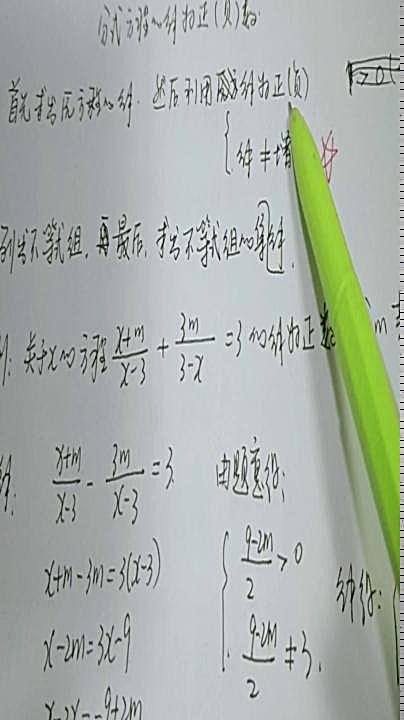 分式方程的解为正(负)数
首先求出原方程的解. 然后利用 解为正(负)
解≠增
列出不等式组, 最后, 求出不等式组的解.
例. 关于x的方程 \frac{x+m}{x-3} + \frac{3m}{3-x} = 3 的解为正数 m
解. \frac{x+m}{x-3} - \frac{3m}{x-3} = 3
x+m-3m=3(x-3)
x-2m=3x-9
x-3x=-9+2m
由题意得:
\frac{9-2m}{2} > 0
\frac{9-2m}{2} ≠ 3.
解得: